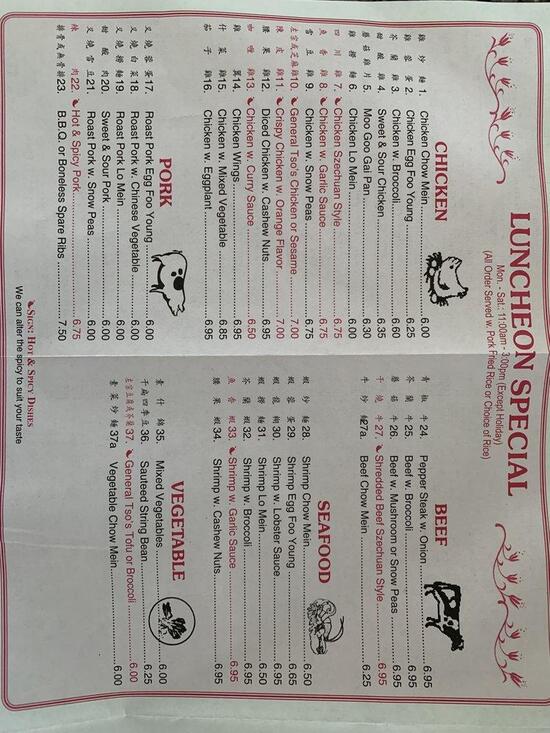 LUNCHEON SPECIAL
Mon. - Sat.: 11:00am - 3:00pm (Except Holiday)
(All Order Served w. Pork Fried Rice or Choice of Rice)
CHICKEN
雞 炒 麵 1. Chicken Chow Mein 6.00
雞 蓉 蛋 2. Chicken Egg Foo Young 6.25
芥 蘭 雞 3. Chicken w. Broccoli 6.60
甜 酸 雞 4. Sweet & Sour Chicken 6.35
蘑 菇 雞 片 5. Moo Goo Gai Pan 6.30
雞 撈 麵 6. Chicken Lo Mein 6.00
四 川 雞 7. Chicken Szechuan Style 6.75
魚 香 雞 8. Chicken w. Garlic Sauce 6.75
雪 豆 雞 9. Chicken w. Snow Peas 6.75
左宗或芝麻雞 10. General Tso's Chicken or Sesame 7.00
陳 皮 雞 11. Crispy Chicken w. Orange Flavor 7.00
腰 果 雞 12. Diced Chicken w. Cashew Nuts 6.95
咖 喱 雞 13. Chicken w. Curry Sauce 6.50
雞 翼 14. Chicken Wings 6.95
什 菜 雞 15. Chicken w. Mixed Vegetable 6.95
茄 子 雞 16. Chicken w. Eggplant 6.95
PORK
叉 燒 蓉 蛋 17. Roast Pork Egg Foo Young 6.00
叉 燒 白 菜 18. Roast Pork w. Chinese Vegetable 6.00
叉 燒 撈 麵 19. Roast Pork Lo Mein 6.00
甜 酸 肉 20. Sweet & Sour Pork 6.00
叉 燒 雪 豆 21. Roast Pork w. Snow Peas 6.00
辣 肉 22. Hot & Spicy Pork 6.75
排骨或無骨排 23. B.B.Q. or Boneless Spare Ribs 7.50
BEEF
青 椒 牛 24. Pepper Steak w. Onion 6.95
芥 蘭 牛 25. Beef w. Broccoli 6.95
蘑 菇 牛 26. Beef w. Mushroom or Snow Peas 6.95
干 燒 牛 27. Shredded Beef Szechuan Style 6.95
牛 炒 麵 27a. Beef Chow Mein 6.25
SEAFOOD
蝦 炒 麵 28. Shrimp Chow Mein 6.50
蝦 蓉 蛋 29. Shrimp Egg Foo Young 6.65
蝦 龍 糊 30. Shrimp w. Lobster Sauce 6.95
蝦 撈 麵 31. Shrimp Lo Mein 6.50
芥 蘭 蝦 32. Shrimp w. Broccoli 6.95
魚 香 蝦 33. Shrimp w. Garlic Sauce 6.95
腰 果 蝦 34. Shrimp w. Cashew Nuts 6.95
VEGETABLE
素 什 錦 35. Mixed Vegetables 6.00
干 煸 四 季 豆 36. Sauteed String Bean 6.25
左宗豆腐或芥蘭 37. General Tso's Tofu or Broccoli 6.00
素 菜 炒 麵 37a. Vegetable Chow Mein 6.00
SIGN: HOT & SPICY DISHES
We can alter the spicy to suit your taste